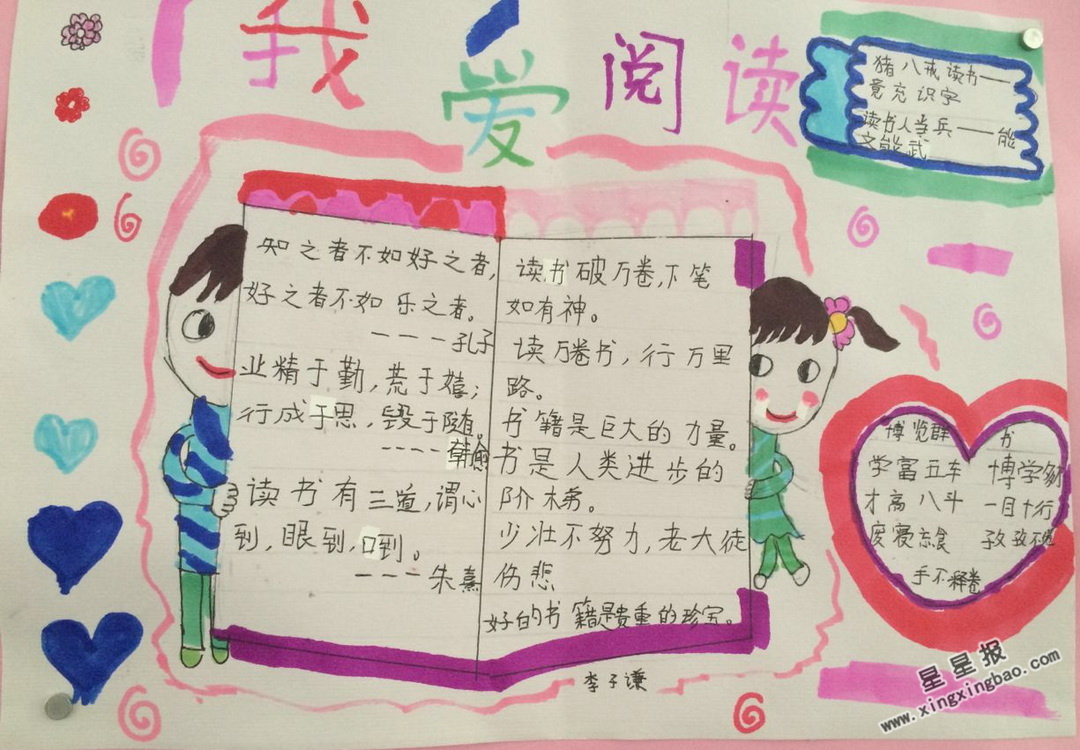 我爱阅读
猪八戒读书——
竟充识字
读书人当兵——能
文能武
知之者不如好之者,
好之者不如乐之者。
————孔子
业精于勤,荒于嬉;
行成于思,毁于随。
————韩愈
读书有三道,谓心
到,眼到,口到。
————朱熹
读书破万卷,下笔
如有神。
读万卷书,行万里
路。
书籍是巨大的力量。
书是人类进步的
阶梯。
少壮不努力,老大徒
伤悲
好的书籍是贵重的珍宝。
李子谦
博览群书
学富五车 博学多才
才高八斗 一目十行
废寝忘食 孜孜不倦
手不释卷
星星报
www.xingxingbao.com